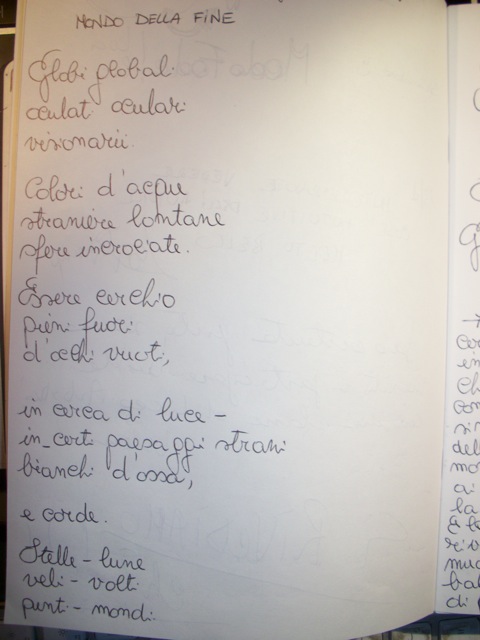 MONDO DELLA FINE
Globi globali
oculati oculari
visionarii.
Colori d'acque
straniere lontane
sfere incrociate.
Essere cerchio
pieni fuori
d'occhi vuoti,
in cerca di luce -
in certi paesaggi strani
bianchi d'ossa,
e corde.
Stelle - lune
veli - volti
punti - mondi.